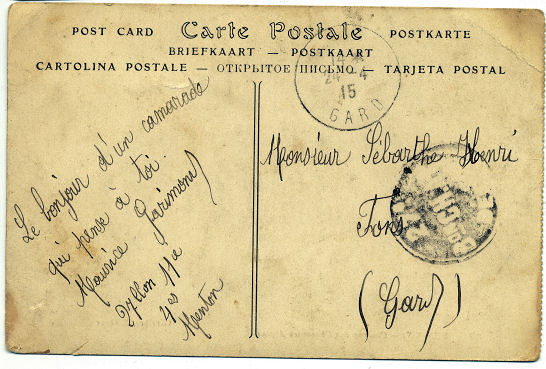 POST CARD Carte Postale POSTKARTE
BRIEFKAART — POSTKAART
CARTOLINA POSTALE — ОТКРЫТОЕ ПИСЬМО — TARJETA POSTAL
24 4
15
GARD
Le bonjour d'un camarade
qui pense à toi.
Maurice Garimond
27 llon 11e
4es
Menton
Monsieur Sébarthe Henri
Fons
(Gard)